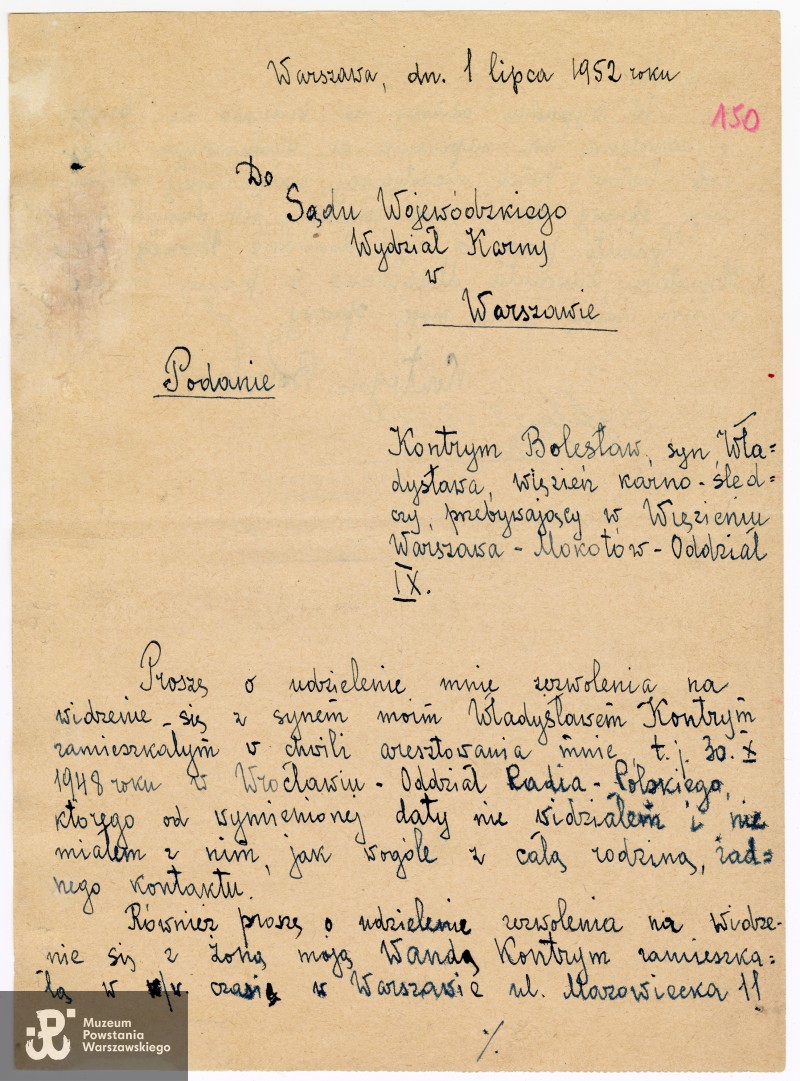 Warszawa, dn. 1 lipca 1952 roku
150
Do
Sądu Wojewódzkiego
Wydział Karny
w
Warszawie
Podanie
Kontrym Bolesław, syn Wła=
dysława, więzień karno-śled=
czy, przebywający w Więzieniu
Warszawa - Mokotów - Oddział
IX.
Proszę o udzielenie mnie zezwolenia na
widzenie się z synem moim Władysławem Kontrym
zamieszkałym w chwili aresztowania mnie, t.j. 30.X
1948 roku w Wrocławiu - Oddział Radia-Polskiego,
którego od wymienionej daty nie widziałem i nie
miałem z nim, jak wogóle z całą rodziną, żad=
nego kontaktu.
Również proszę o udzielenie zezwolenia na widze-
nie się z żoną moją Wandą Kontrym zamieszka=
łą w w/w. czasie w Warszawie ul. Mazowiecka 11
./.
Muzeum
Powstania
Warszawskiego